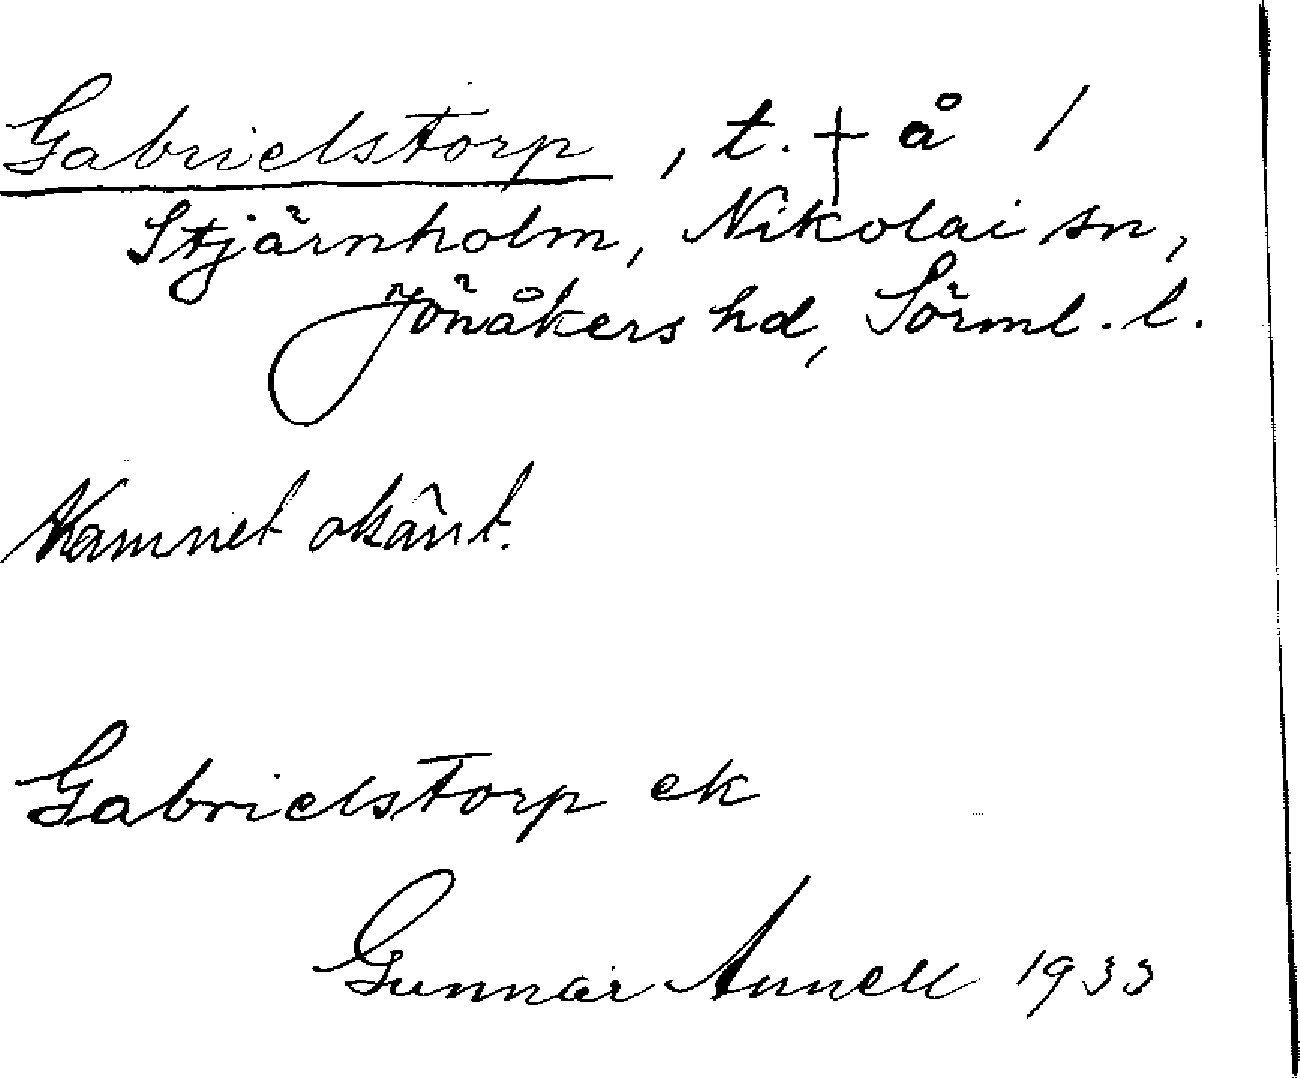 Gabrielstorp, t. † å /
Stjärnholm, Nikolai sn,
Jönåkers hd, Sörml. l.
Namnet okänt.
Gabrielstorp ek
Gunnar Annell 1933